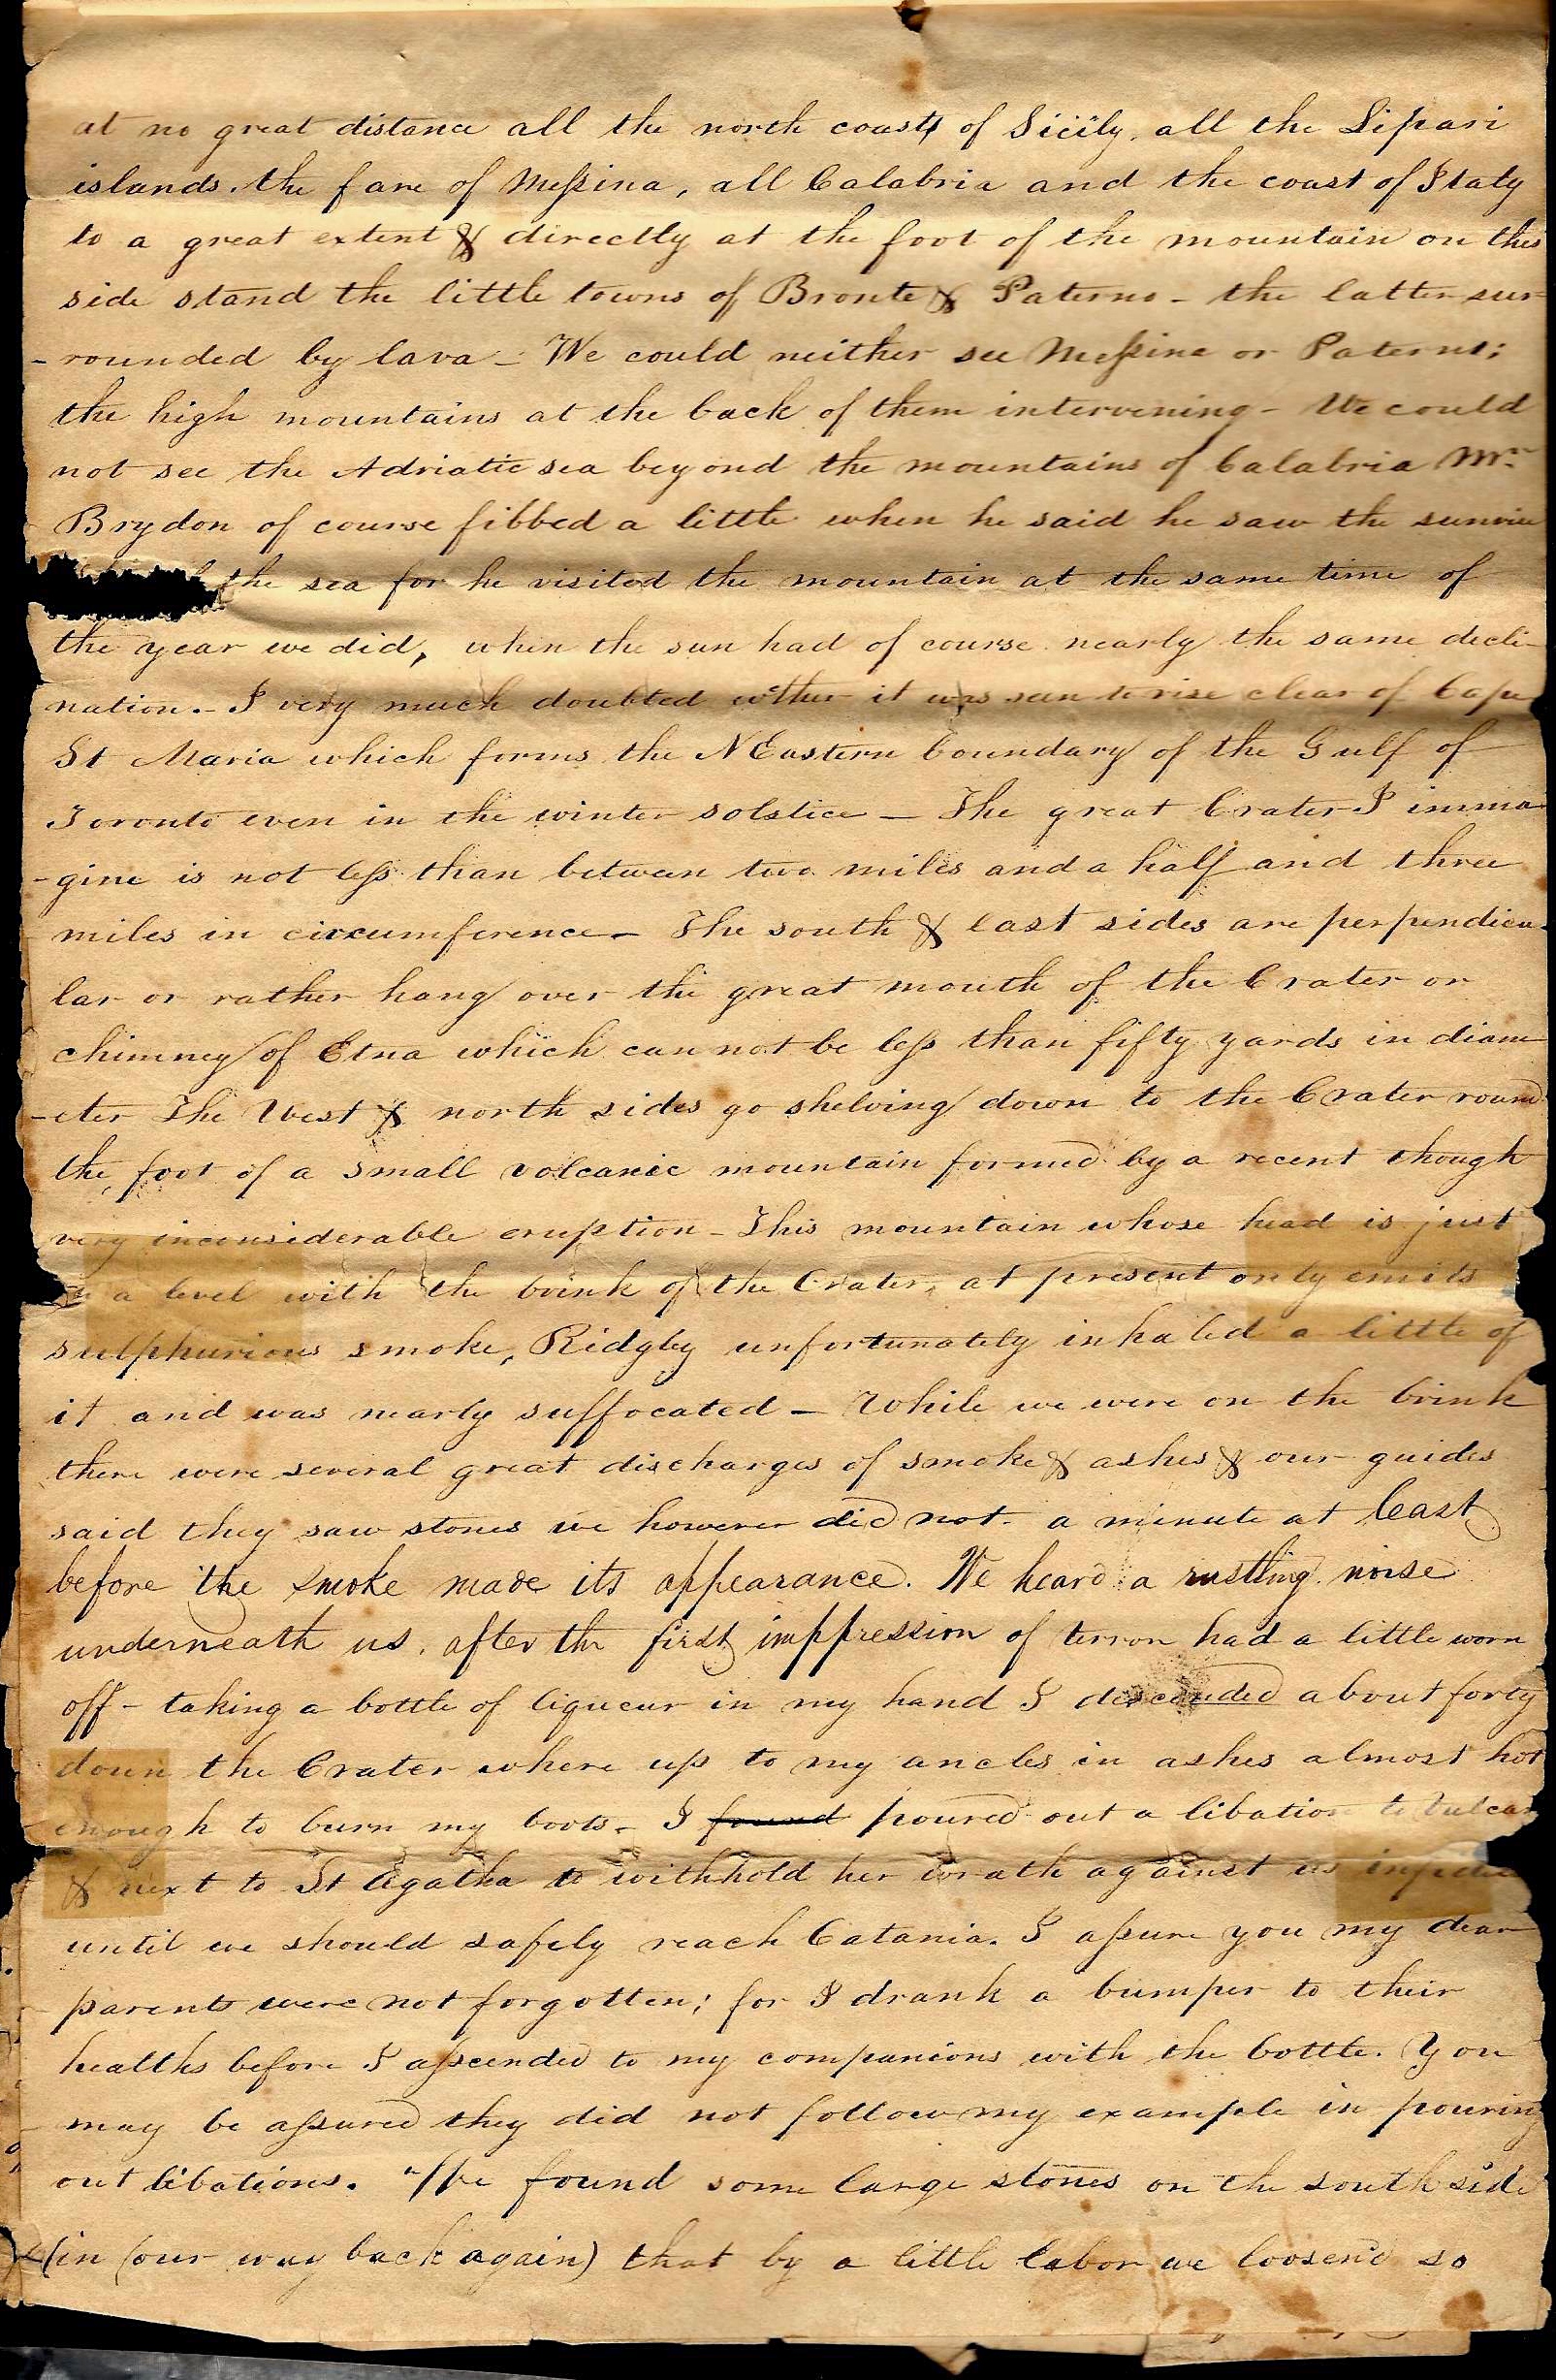 at no great distance all the north coast of Sicily, all the Lipari
islands. the fare of Messina, all Calabria and the coast of Italy
to a great extent & directly at the foot of the mountain on this
side stand the little towns of Bronte & Paterno - the latter sur-
-rounded by lava - We could neither see Messina or Paterno;
the high mountains at the back of them intervening - We could
not see the Adriatic sea beyond the mountains of Calabria Mr.
Brydon of course fibbed a little when he said he saw the sunrise
the sea for he visited the mountain at the same time of
the year we did, when the sun had of course nearly the same decli-
nation. - I very much doubted wither it was seen to rise clear of Cape
St Maria which forms the NEastern boundary of the Gulf of
Toronto even in the winter solstice - The great Crater I imma
-gine is not less than between two miles and a half and three
miles in circumference - The south & east sides are perpendicu-
lar or rather hang over the great mouth of the Crater or
chimney of Etna which can not be less than fifty yards in diam
-eter The West & north sides go shelving down to the Crater round
the foot of a small volcanic mountain formed by a recent though
very inconsiderable eruption - This mountain whose head is just
a level with the brink of the Crater, at present only emits
sulphurious smoke, Ridgly unfortunately inhaled a little of
it and was nearly suffocated - While we were on the brink
there were several great discharges of smoke & ashes & our guides
said they saw stones we however did not. a minute at least
before the smoke made its appearance. We heard a rustling noise
underneath us. after the first imppression of terror had a little worn
off - taking a bottle of liqueur in my hand I descended about forty
down the Crater where up to my ancles in ashes almost hot
enough to burn my boots - I found poured out a libation to Vulcan
& next to St Agatha to withhold her wrath against us
until we should safely reach Catania. I assure you my dear
parents were not forgotten; for I drank a bumper to their
healths before I asscended to my companions with the bottle. You
may be assured they did not follow my example in pouring
out libations. We found some large stones on the south side
(in (our way back again) that by a little labor we loosen'd so